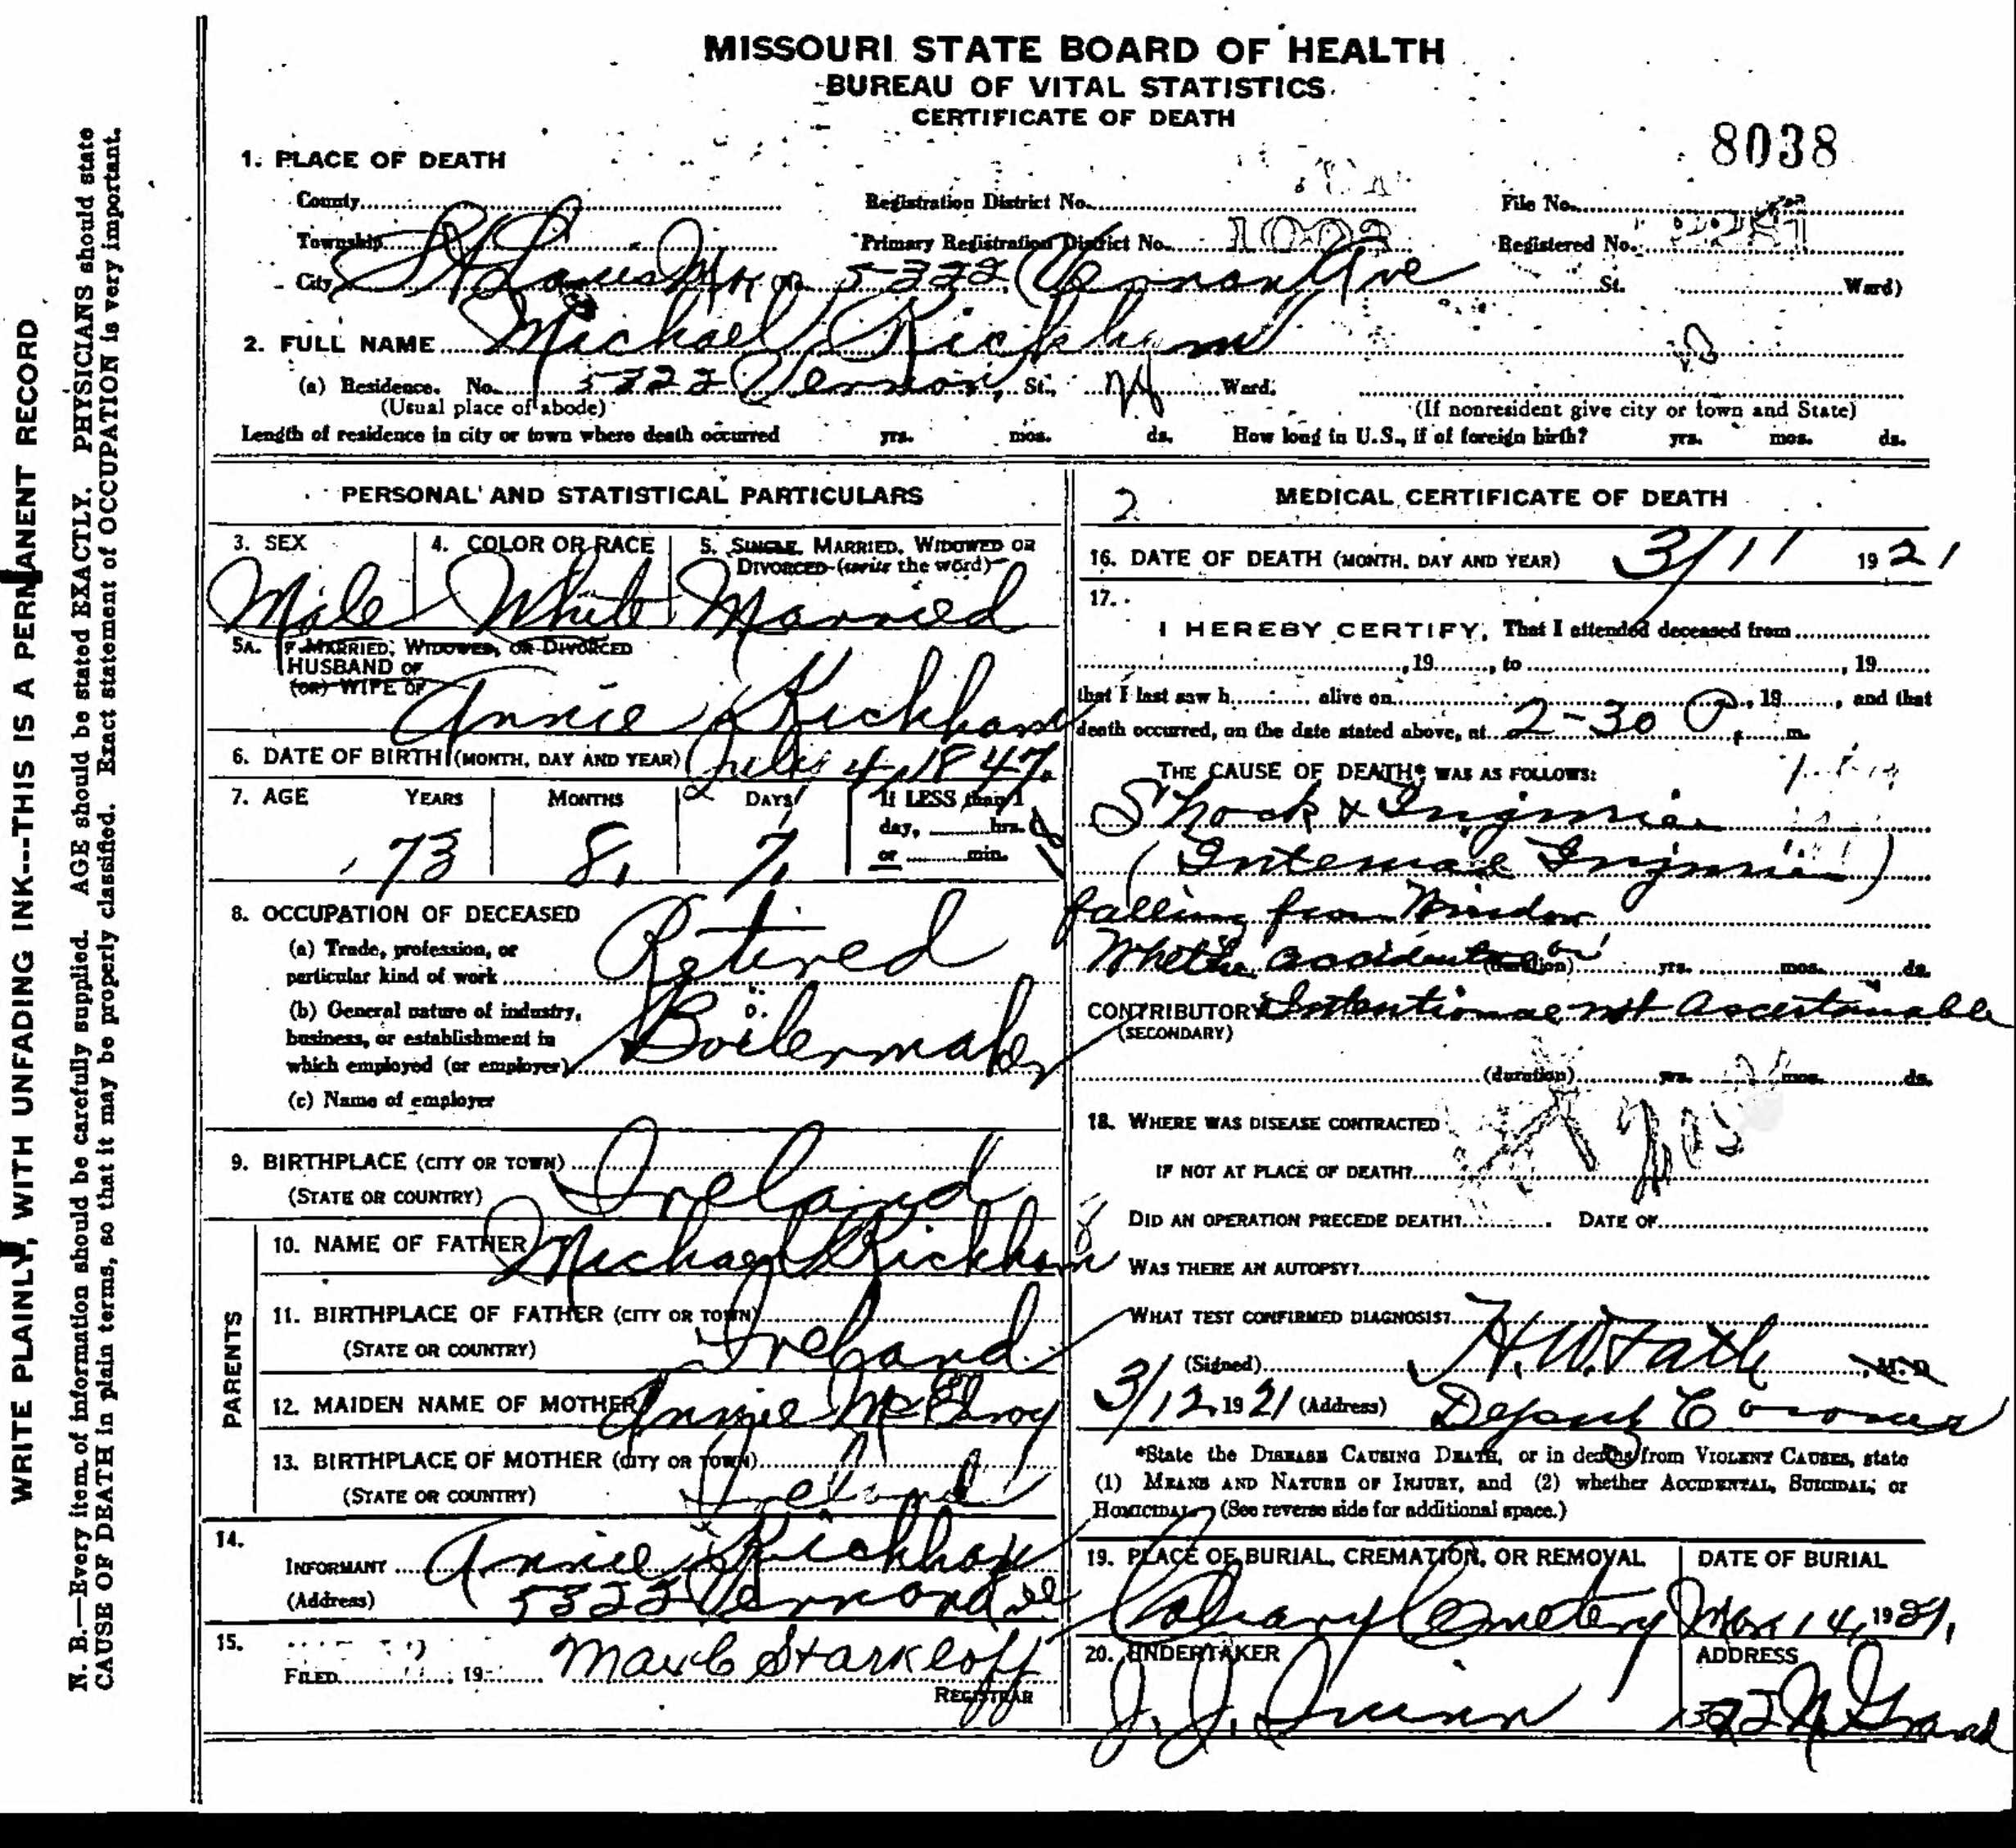 MISSOURI STATE BOARD OF HEALTH
BUREAU OF VITAL STATISTICS
CERTIFICATE OF DEATH
8038
1. PLACE OF DEATH
County Registration District No. File No.
Township Primary Registration District No. 1003 Registered No.
City St Louis Mo 5322 Vernon Ave St. Ward)
2. FULL NAME Michael Kickham
(a) Residence. No. 5322 Vernon St., Ward.
(Usual place of abode) (If nonresident give city or town and State)
Length of residence in city or town where death occurred yrs. mos. ds. How long in U.S., if of foreign birth? yrs. mos. ds.
PERSONAL AND STATISTICAL PARTICULARS
3. SEX 4. COLOR OR RACE 5. SINGLE, MARRIED, WIDOWED OR
DIVORCED (write the word)
Male White Married
5A. IF MARRIED, WIDOWED, OR DIVORCED
HUSBAND OF
(OR) WIFE OF
Annie Kickham
6. DATE OF BIRTH (MONTH, DAY AND YEAR) July 4, 1847.
7. AGE YEARS MONTHS DAYS If LESS than 1
day, hrs.
or min.
73 8, 7,
8. OCCUPATION OF DECEASED
(a) Trade, profession, or
particular kind of work Retired
(b) General nature of industry,
business, or establishment in
which employed (or employer) Boilermaker
(c) Name of employer
9. BIRTHPLACE (CITY OR TOWN)
(STATE OR COUNTRY) Ireland
PARENTS
10. NAME OF FATHER Michael Kickham
11. BIRTHPLACE OF FATHER (CITY OR TOWN)
(STATE OR COUNTRY) Ireland
12. MAIDEN NAME OF MOTHER Annie McElroy
13. BIRTHPLACE OF MOTHER (CITY OR TOWN)
(STATE OR COUNTRY) Ireland
14.
INFORMANT Annie Kickham
(Address) 5322 Vernon Ave
15.
FILED 19 Max C Starkloff
REGISTRAR
2 MEDICAL CERTIFICATE OF DEATH
16. DATE OF DEATH (MONTH, DAY AND YEAR) 3/11 1921
17.
I HEREBY CERTIFY, That I attended deceased from
, 19 , to , 19
that I last saw h alive on , 19 , and that
death occurred, on the date stated above, at 2-30 P. m.
THE CAUSE OF DEATH* WAS AS FOLLOWS:
Shock & Injuries
(Internal Injuries)
falling from Window
Whether accidental or (duration) yrs. mos. ds.
CONTRIBUTORY Intentional not Ascertainable
(SECONDARY)
(duration) yrs. mos. ds.
18. WHERE WAS DISEASE CONTRACTED
IF NOT AT PLACE OF DEATH?
DID AN OPERATION PRECEDE DEATH? DATE OF
WAS THERE AN AUTOPSY?
WHAT TEST CONFIRMED DIAGNOSIS?
(Signed) H. W. Fath, M. D
3/12, 1921 (Address) Deputy Coroner
*State the DISEASE CAUSING DEATH, or in deaths from VIOLENT CAUSES, state
(1) MEANS AND NATURE OF INJURY, and (2) whether ACCIDENTAL, SUICIDAL, or
HOMICIDAL. (See reverse side for additional space.)
19. PLACE OF BURIAL, CREMATION, OR REMOVAL DATE OF BURIAL
Calvary Cemetery Mar 14, 1921,
20. UNDERTAKER ADDRESS
J. J. Quinn 1322 N Grand
WRITE PLAINLY, WITH UNFADING INK---THIS IS A PERMANENT RECORD
N. B.—Every item of information should be carefully supplied. AGE should be stated EXACTLY. PHYSICIANS should state
CAUSE OF DEATH in plain terms, so that it may be properly classified. Exact statement of OCCUPATION is very important.